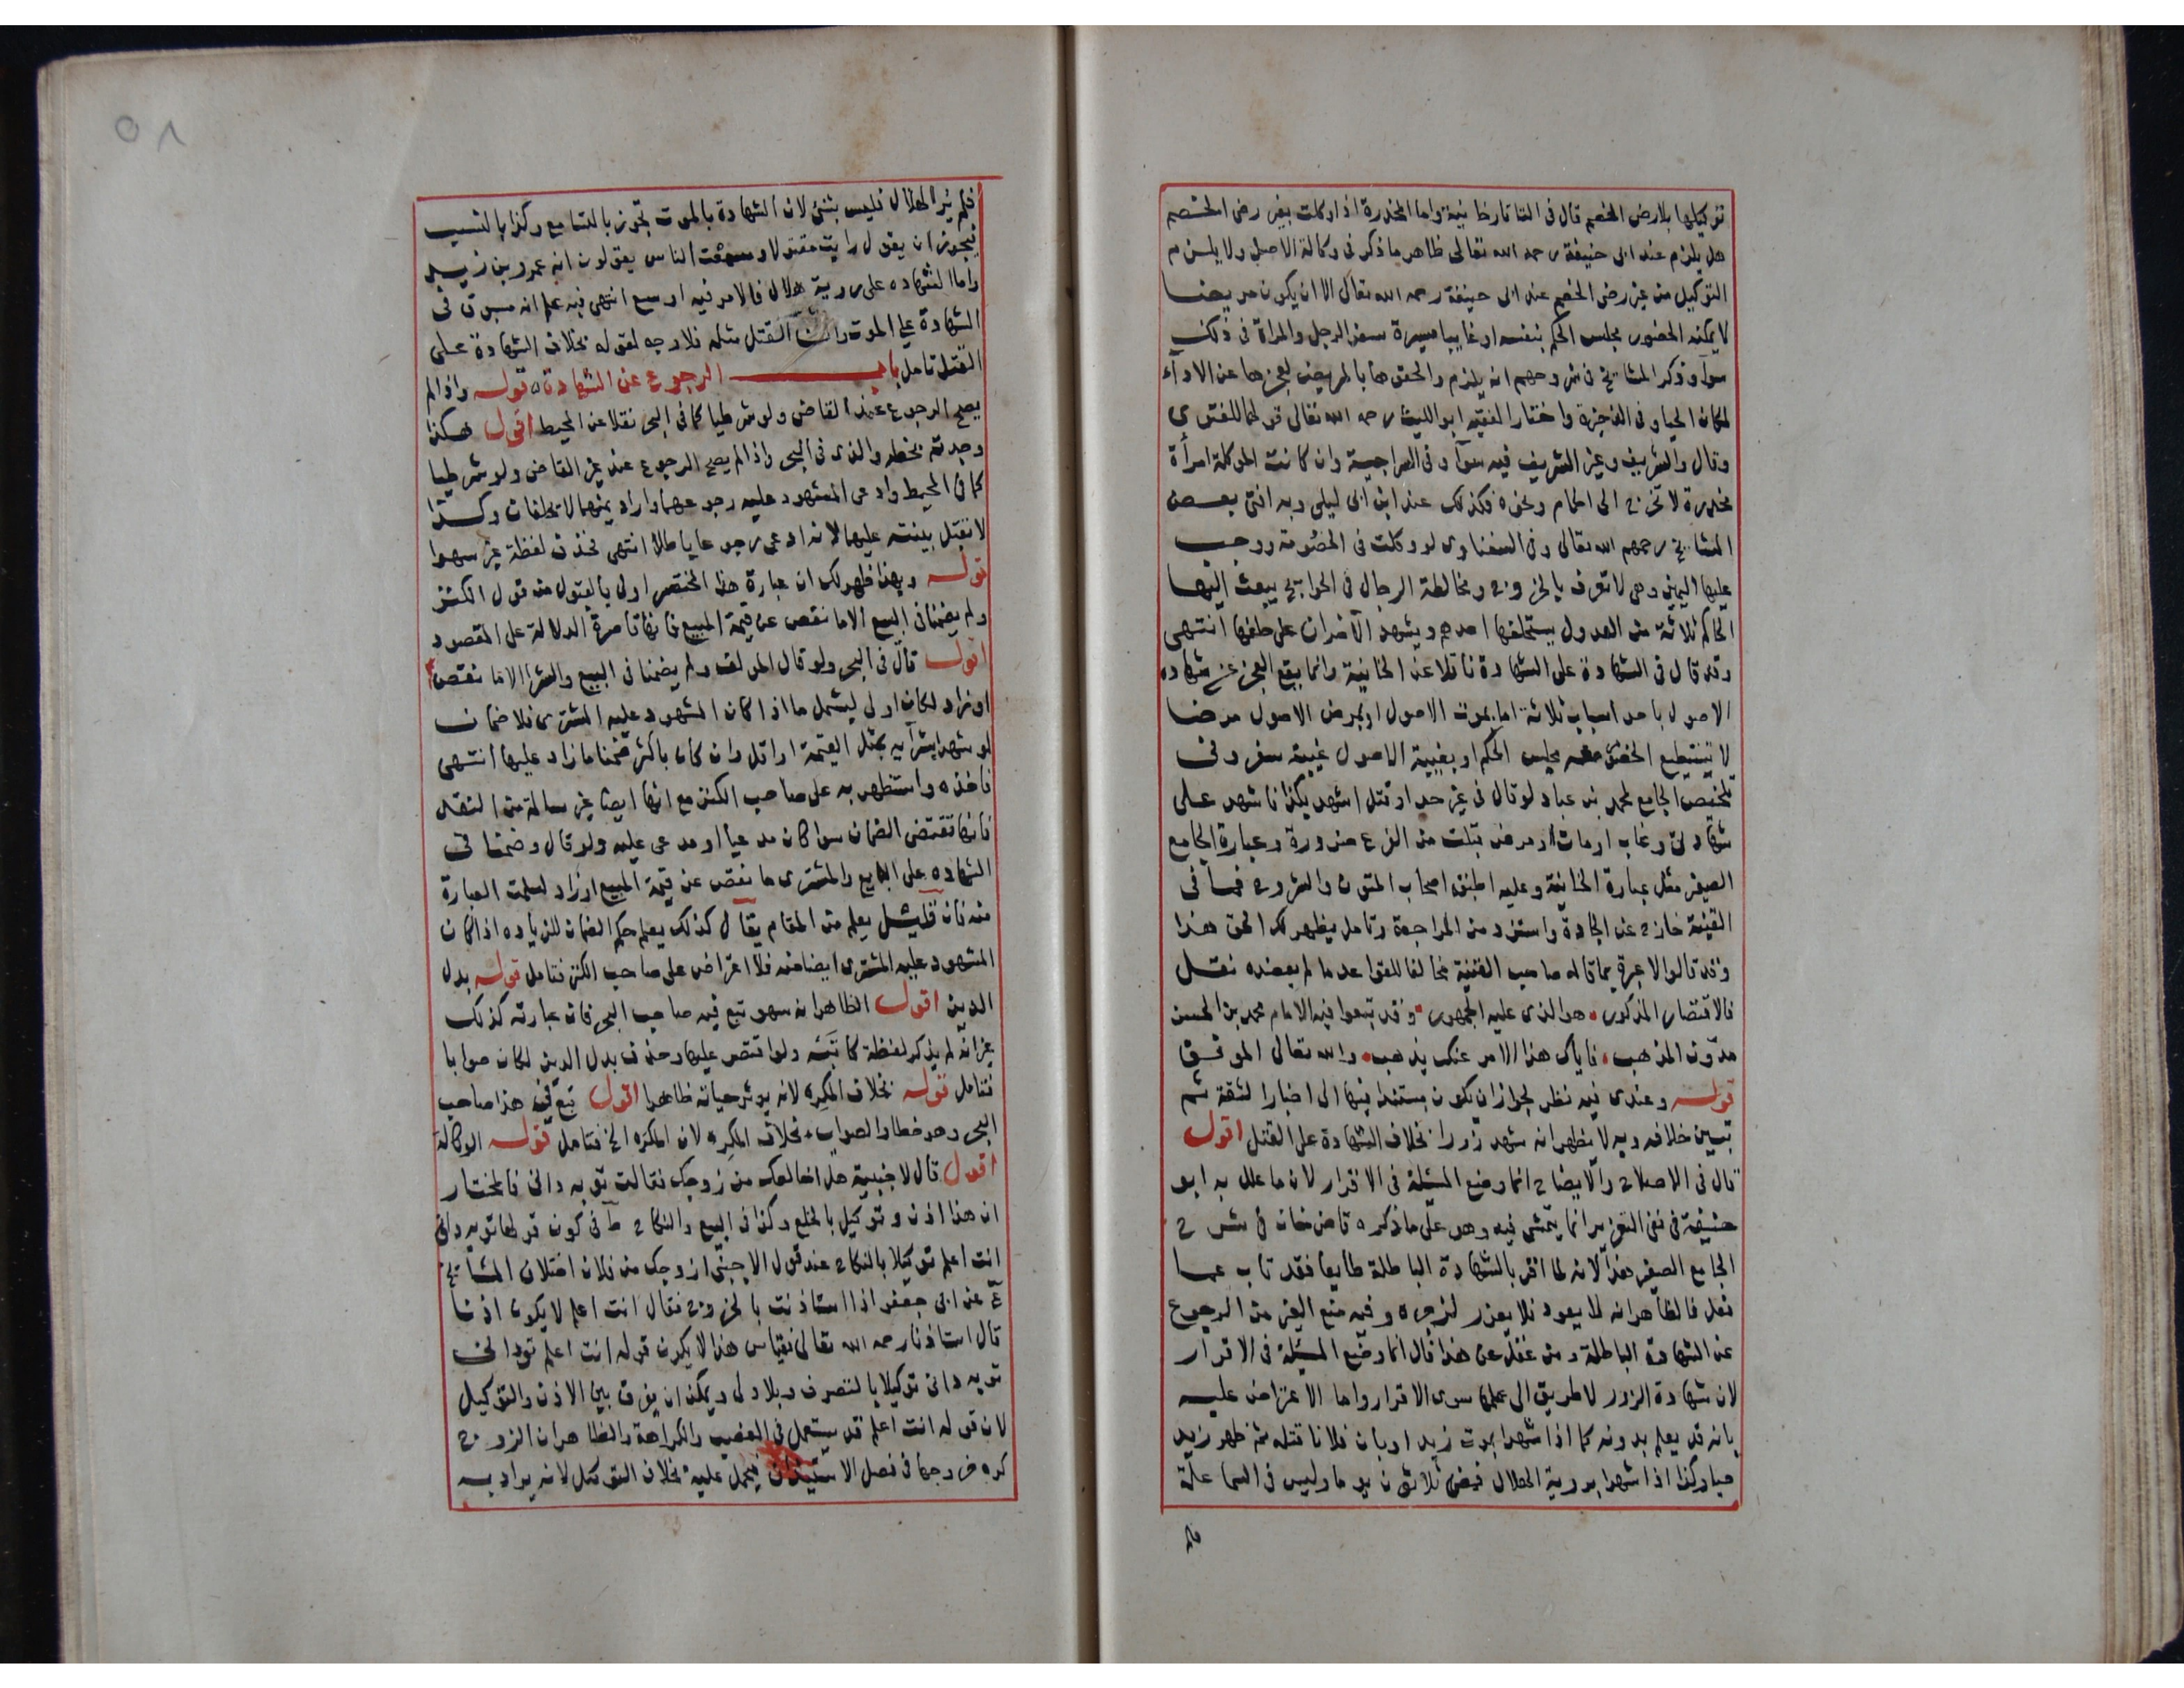 توكيلها بلا رضى الخصم قال فى التتارخانية واما المخدرة اذا وكلت بغير رضى الخصم
هل يلزم عند ابى حنيفة رحمه الله تعالى ظاهر ما ذكر فى وكالة الاصل ولا يلزم
التوكيل من غير رضى الخصم عند ابى حنيفة رحمه الله تعالى الا ان يكون مريضا
لا يمكنه الحضور مجلس الحكم بنفسه او غايبا مسيرة سفر الرجل والمراة فى ذلك
سوآ وذكر المشايخ فى شروحهم انه يلزم والحقوها بالمريض لعجزها عن الادآء
لمكان الحيا وفى الذخيرة واختار الفقيه ابو الليث رحمه الله تعالى قولهما للفتوى
وقال والشريف وغير الشريف فيه سوآ وفى السراجية وان كانت الموكلة امرأة
مخدرة لا تخرج الى الحمام ونحوه فكذلك عند ابن ابى ليلى وبه افتى بعض
المشايخ رحمهم الله تعالى وفى السغناوى لو وكلت فى الخصومة ووجب
عليها اليمين وهى لا تعرف بالخروج ومخالطة الرجال فى الحوايج يبعث اليها
الحاكم ثلاثة من العدول يستحلفها احدهم ويشهد الآخران على حلفها انتهى
وقد قال فى الشهادة على الشهادة ناقلا عن الخانية وانما يقع العجز عن شهادة
الاصول باحد اسباب ثلاثة اما بموت الاصول او بمرض الاصول مرضا
لا يستطيع الحضور معه مجلس الحكم او بغيبة الاصول غيبة سفر وفى
تلخيص الجامع لمحمد بن عباد لو قال فى غير حد او قتل اشهد بكذا فاشهد على
شهادتى وغاب او مات او مرض قبلت من الفرع ضرورة وعبارة الجامع
الصغير مثل عبارة الخانية وعليه اطبق اصحاب المتون والشروح فما فى
القنية خارج عن الجادة واستزد من المراجعة وتامل يظهر لك الحق هذا
وقد قالوا لا عبرة بما قاله صاحب القنية مخالفا للقواعد ما لم يعضده نقل
فالاقتصار المذكور هو الذى عليه الجمهور وقد تبعوا فيه الامام محمد بن الحسن
مدون المذهب فاياك هذا الامر عنك يذهب والله تعالى الموفق
قوله وعندى فيه نظر لجواز ان يكون مستندا فيها الى اخبار الثقة ثم
تبين خلافه وبه لا يظهر انه شهد زورا بخلاف الشهادة على القتل اقول
قال فى الاصلاح والايضاح انما وضع المسئلة فى الاقرار لان ما علل به ابو
حنيفة فى نفى التعزير انما يتمشى فيه وهو على ما ذكره قاضى خان فى شرح
الجامع الصغير هذا لانه لما اقر بالشهادة الباطلة طايعا فقد تاب عما
فعل فالظاهر انه لا يعود فلا يعزر لزجره وفيه منع الغير من الرجوع
عن الشهادة الباطلة ومن غفل عن هذا قال انما وضع المسئلة فى الاقرار
لان شهادة الزور لا طريق الى علمها سوى الاقرار واما الاعتراض عليه
بانه قد يعلم بدونه كما اذا شهدا بموت زيد او بان فلانا قتله ثم ظهر زيد
حيا وكذا اذا شهدا بروية الهلال فمضى ثلاثون يوما وليس فى السما علة
فلم
فلم ير الهلال فليس بشئ لان الشهادة بالموت تجوز بالتسامع وكذا بالنسب
فيجوز ان يقول رايت مقتولا وسمعت الناس يقولون انه عمرو بن زيد
واما الشهاده على روية هلال فالامر فيه اوسع انتهى فيه علم انه مسبوق فى
الشهادة على الموت القتل مثله فلا وجه لقوله بخلاف الشهادة على
القتل تامل باب الرجوع عن الشهادة قوله واذا لم
يصح الرجوع عند القاضى ولو شرطيا كما فى البحر نقلا عن المحيط اقول هكذا
وجدته بخطه والذى فى البحر واذا لم يصح الرجوع عند غير القاضى ولو شرطيا
كما فى المحيط وادعى المشهود عليه رجوعهما واراد يمينهما لا يحلفان وكذا
لا تقبل بينته عليهما لانه ادعى رجوعا باطلا انتهى فحذف لفظة غير سهوا
قوله وبهذا ظهر لك ان عبارة هذا المختصر اولى بالقبول من قول الكنز
ولم يضمنا فى البيع الا ما نقص عن قيمة المبيع فانها قاصرة الدلالة على المقصود
اقول قال فى البحر ولو قال المولف ولم يضمنا فى البيع والشرا الا ما نقص
او زاد لكان اولى ليشمل ما اذا كان المشهود عليه المشترى فلا ضمان
لو شهدا بشرآيه بمثل القيمة او اقل وان كان باكثر ضمنا ما زاد عليها انتهى
فاخذه واستظهر به على صاحب الكنز مع انها ايضا غير سالمة من النقد
فانها تقتضى الضمان سوا كان مدعيا او مدعى عليه ولو قال وضمنا فى
الشهاده على البايع والمشترى ما نقص عن قيمة المبيع او زاد لسلمت العبارة
منه فان قيل يعلم من المقام يقال كذلك يعلم حكم الضمان للزياده اذا كان
المشهود عليه المشترى ايضا منه فلا اعتراض على صاحب الكنز فتامل قوله بدل
الدين اقول الظاهر انه سهو تبع فيه صاحب البحر فان عبارته كذلك
غير انه لم يذكر لفظة كانه ولو اقتصر عليها وحذف بدل الدين لكان صوابا
فتامل قوله بخلاف المكره لانه يوثر حياته ظاهرا اقول تبع فى هذا صاحب
البحر وهو خطا والصواب بخلاف المكره لان المكره الخ فتامل قوله الوكالة
اقول قال لاجنبية هل اخالعك من زوجك فقالت تو به دانى فالمختار
ان هذا اذن وتوكيل بالخلع وكذا فى البيع والنكاح ط فى كون قولها تو به دانى
انت اعلم توكيلا بالنكاح عند قول الاجنبى ازوجك من فلان اختلاف المشايخ
ع عن ابى جعفر اذا استاذنت بالخروج فقال انت اعلم لا يكون اذنا
قال استاذنا رحمه الله تعالى فقياس هذا لا يكون قوله انت اعلم تو دانى
تو به دانى توكيلا بالتصرف وبلا ولى ويمكن ان يفرق بين الاذن والتوكيل
لان قوله انت اعلم قد يستعمل فى الغضب والكراهة والظاهر ان الزوج
كره خروجها فى فصل الاستيذان فيحمل عليه بخلاف التوكيل لانه يراد به
٥٨